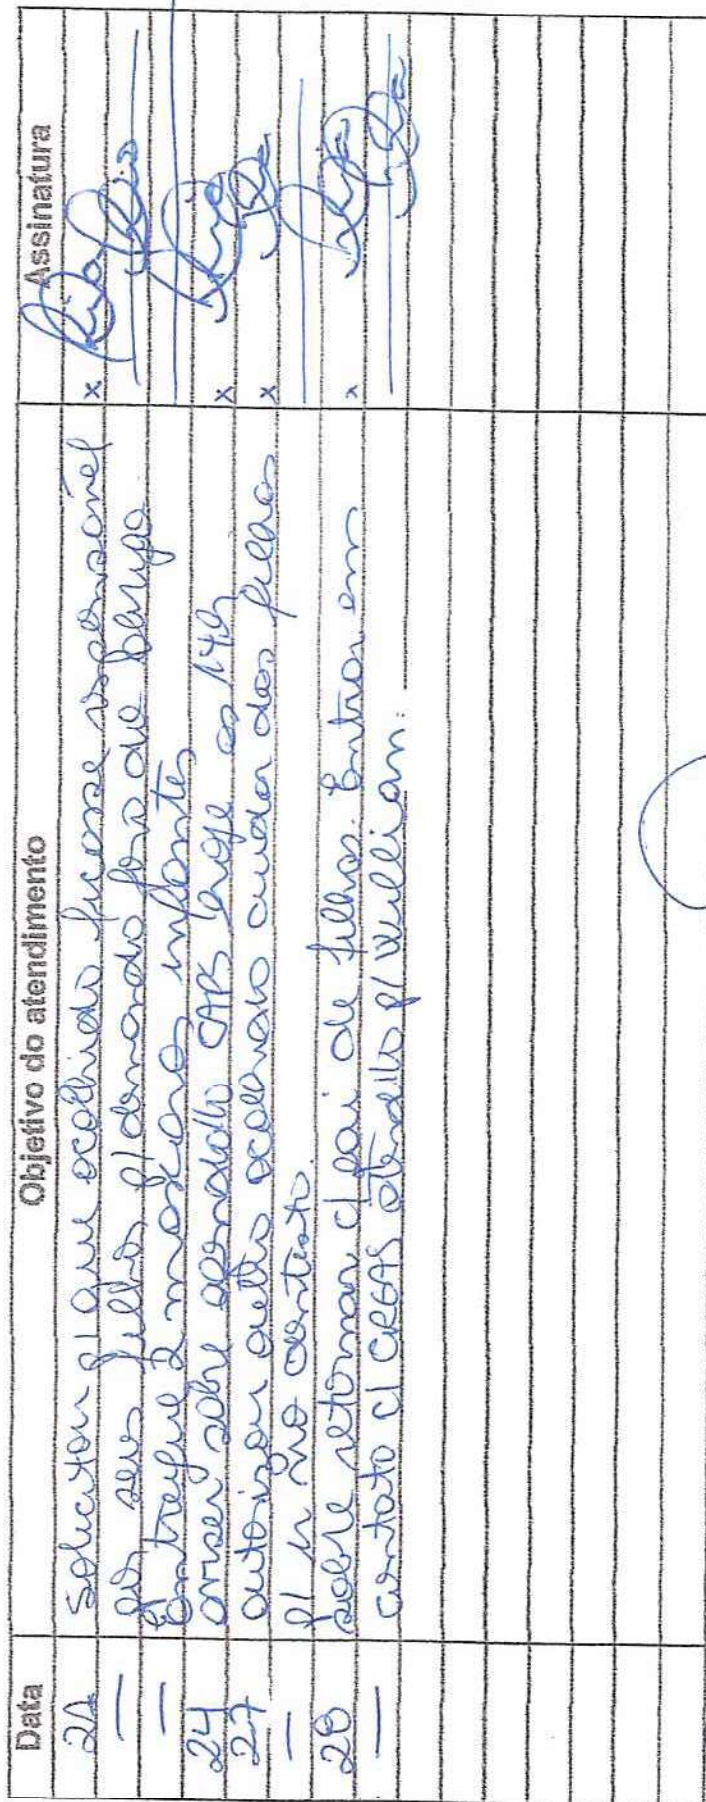 Data Objetivo do atendimento Assinatura
21 solicitou p/ que acolhido ficasse responsável x
por seus filhos p/ demanda fora do abrigo.
— Entregue 2 máscaras infantes
24 aviso sobre agendado CAPS hoje as 14h x
27 autorizou outro acolhido cuidar dos filhos x
— p/ ir no contrato.
28 sobre retornar c/ pai de filhos. Entrou em x
— contato c/ CREAS atendido p/ Willian.